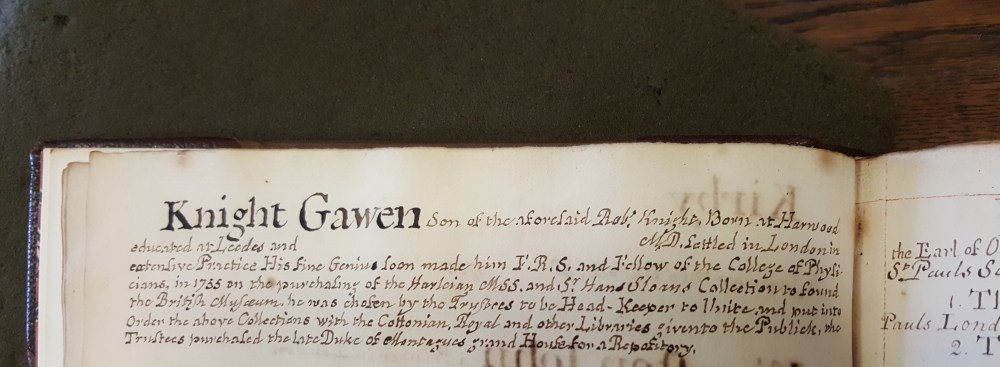 Knight Gawen Son of the aforesaid Robt. Knight, Born at Harwood
educated at Leedes and M.D. settled in London in
extensive Practice His fine Genius soon made him F.R.S. and Fellow of the College of Physi-
cians, in 1755 on the purchasing of the Harleian MSS. and Sr. Hans Sloans Collection to found
the British Musæum, he was chosen by the Trustees to be Head-Keeper to Unite, and put into
Order the above Collections with the Cottonian, Royal and other Libraries given to the Publick, the
Trustees purchased the late Duke of Montagues grand House for a Repository.
the Earl of
St. Pauls
1.
Pauls Lond
2.